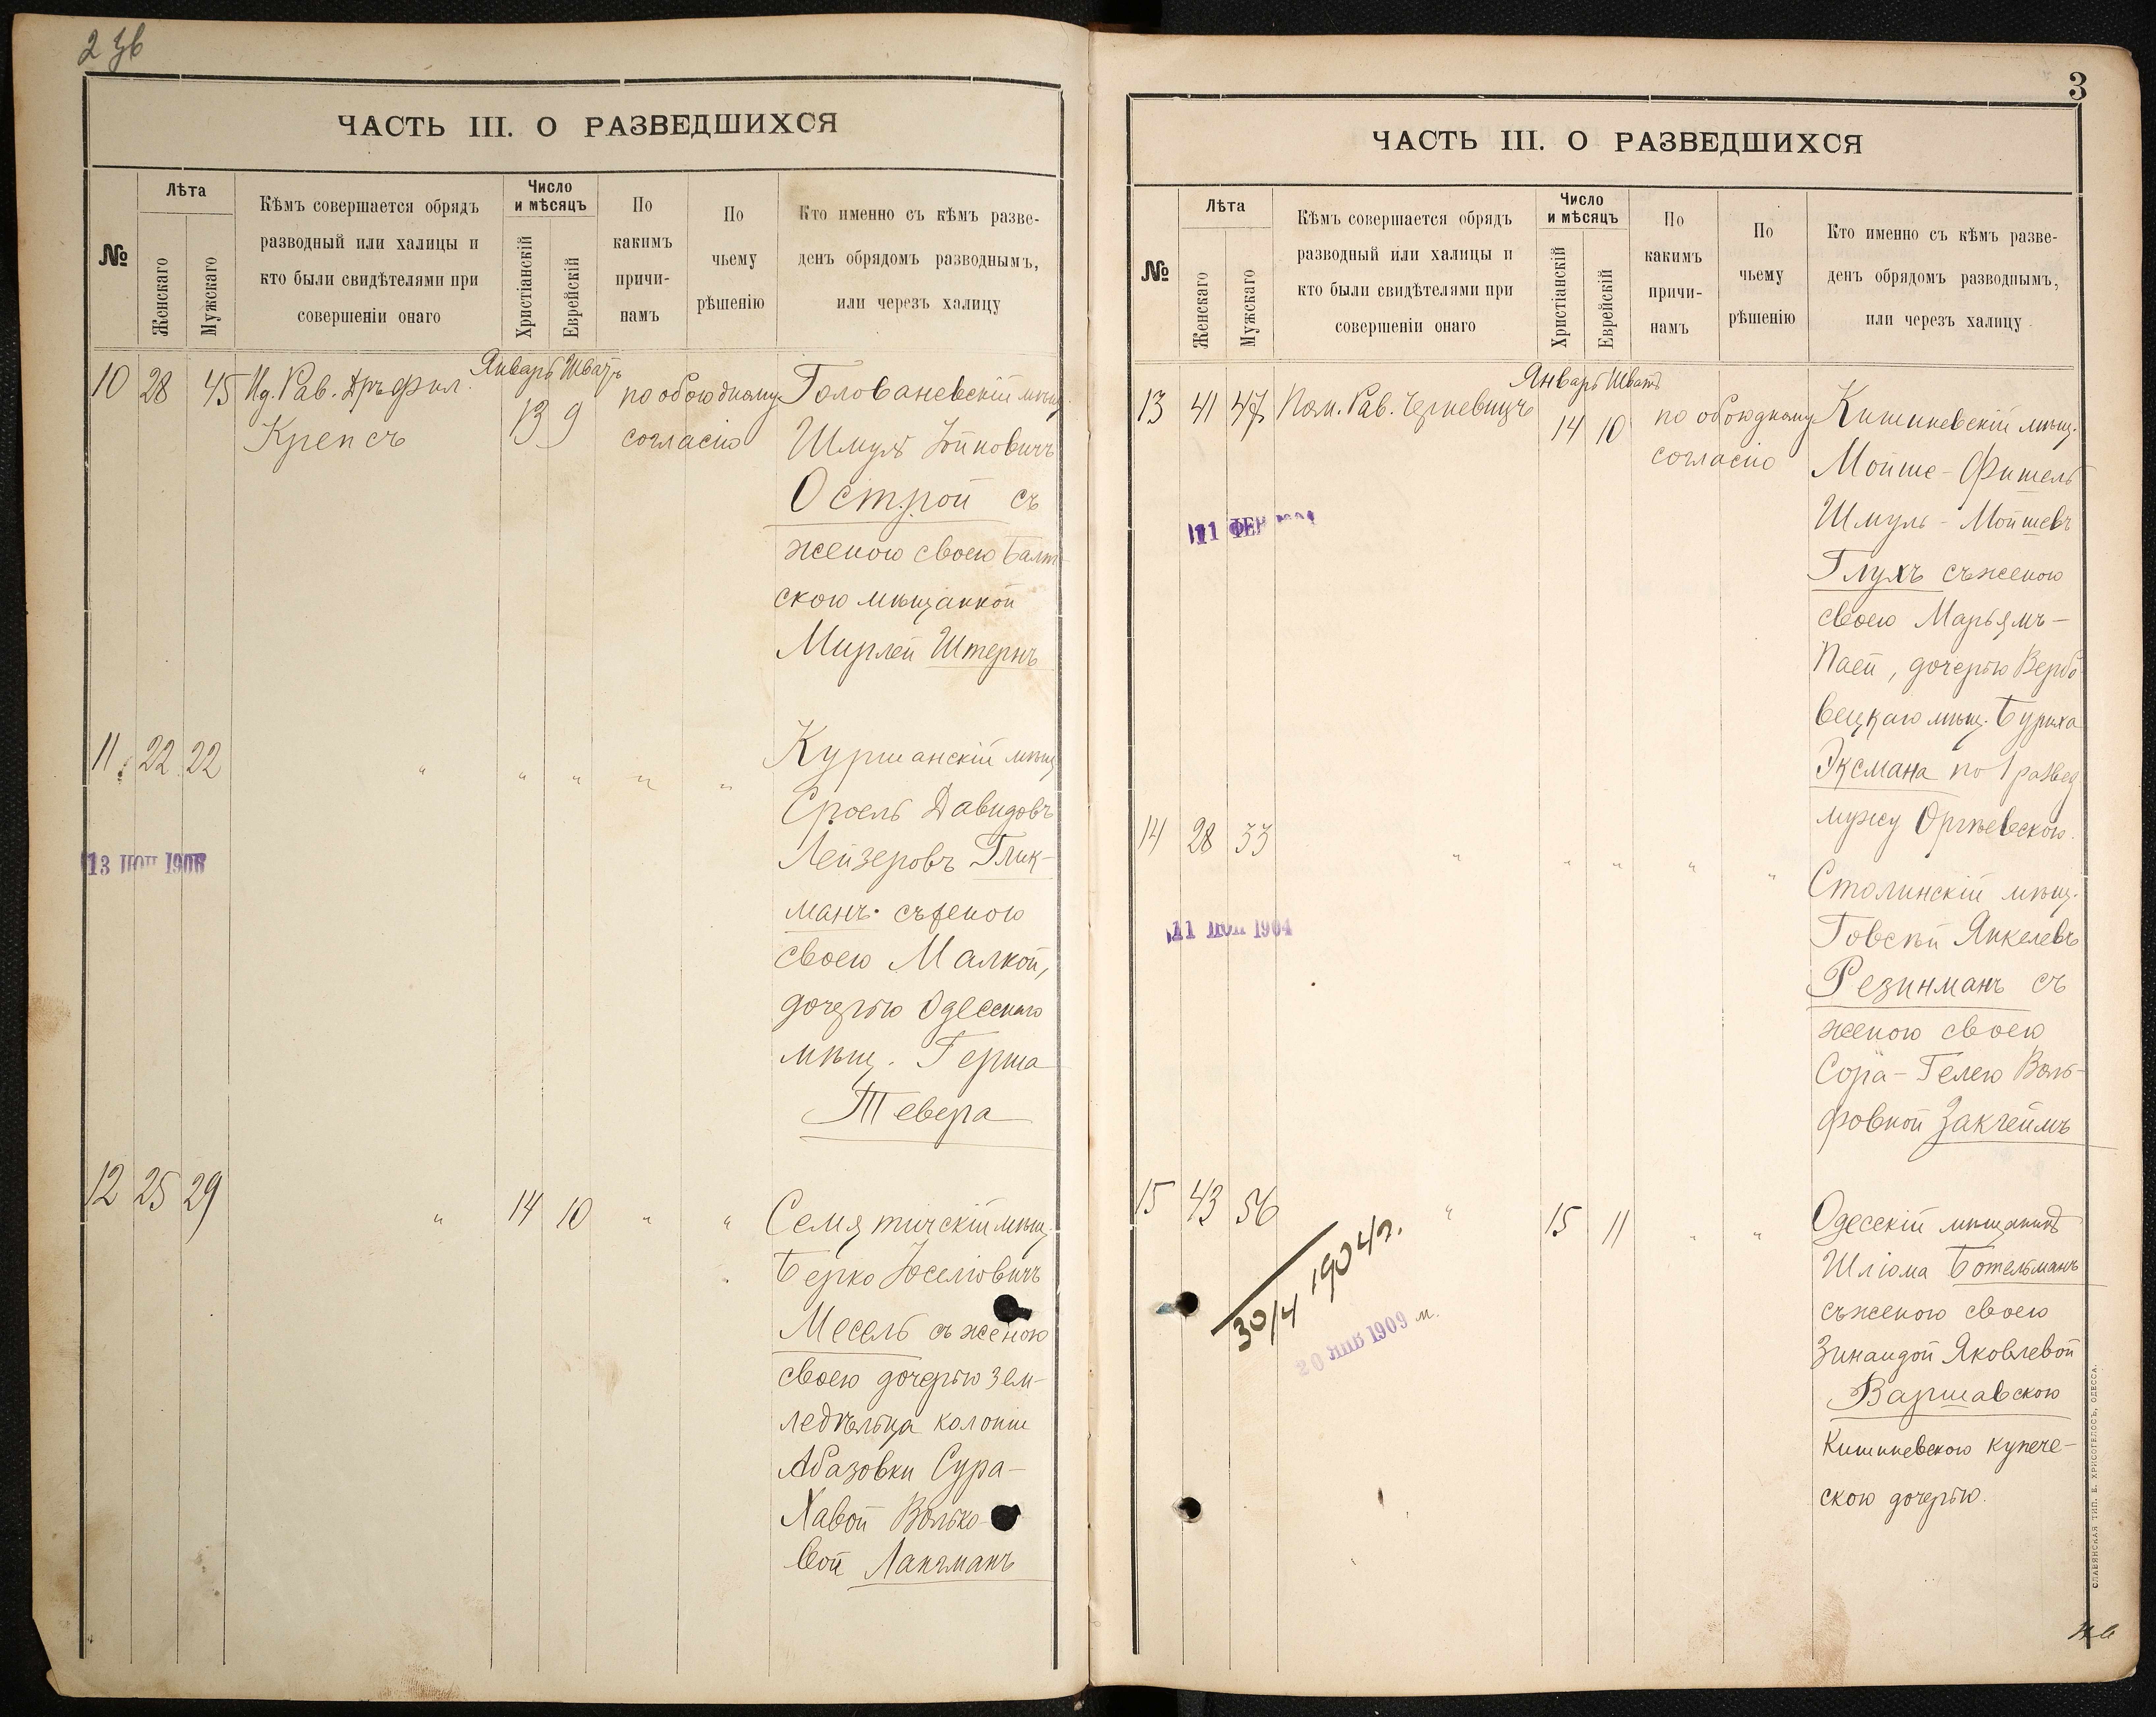 2 зв
ЧАСТЬ III. О РАЗВЕДШИХСЯ
№
Лѣта
Женскаго
Мужскаго
Кѣмъ совершается обрядъ
разводный или халицы и
кто были свидѣтелями при
совершеніи онаго
Число
и мѣсяцъ
Христіанскій
Еврейскій
По
какимъ
причи-
намъ
По
чьему
рѣшенію
Кто именно съ кѣмъ разве-
денъ обрядомъ разводнымъ,
или черезъ халицу
Январь Шватъ
10 28 45 Ид. Рав. Дръ фил. 13 9 по обоюдному Голованевскій мѣщ.
Крепсъ согласію Шмуль
Острой съ
женою своею Балт-
скою мѣщанкой
Мирлей Штернъ
11 22 22 " " " " " Куршанскій мѣщ
Сроель Давидовъ
Лейзеровъ Глик-
манъ съ женою
своею Малкой,
дочерью Одесскаго
мѣщ. Герша
Тевера
13 1906
12 25 29 " 14 10 " " Семятичскій мѣщ.
Берко Іоселіовичъ
Месель съ женою
своею дочерью зем-
ледѣльца колоніи
Абазовки Сура-
Хавой Волько-
вой Лакхманъ
3
ЧАСТЬ III. О РАЗВЕДШИХСЯ
№
Лѣта
Женскаго
Мужскаго
Кѣмъ совершается обрядъ
разводный или халицы и
кто были свидѣтелями при
совершеніи онаго
Число
и мѣсяцъ
Христіанскій
Еврейскій
По
какимъ
причи-
намъ
По
чьему
рѣшенію
Кто именно съ кѣмъ разве-
денъ обрядомъ разводнымъ,
или черезъ халицу
Январь Шватъ
13 41 47 Пом. Рав. Черневицъ 14 10 по обоюдному Кишиневскій мѣщ.
согласію Мойше-Фишель
Шмуль-Мойшевъ
11 ФЕВ
Глухъ съ женою
своею Марьямъ-
Паей, дочерью Вербо-
вецкаго мѣщ. Буриха
Эксмана по 1 развед
мужу Оргѣевскою.
14 28 33 " " " " "
Столинскій мѣщ.
Говсѣй Янкелевъ
11 1904
Резинманъ съ
женою своею
Сура-Гелею Воль-
фовной Закгеймъ
15 43 56 " 15 11 " " Одесскій мѣщанинъ
Шліома Ботельманъ
съ женою своею
Зинаидой Яковлевой
Варшавскою
Кишиневскою купече-
скою дочерью.
30/4 1904 г.
20 ЯНВ 1909 м.
СЛАВЯНСКАЯ ТИП. Е. ХРИСОГЕЛОСЪ, ОДЕССА.